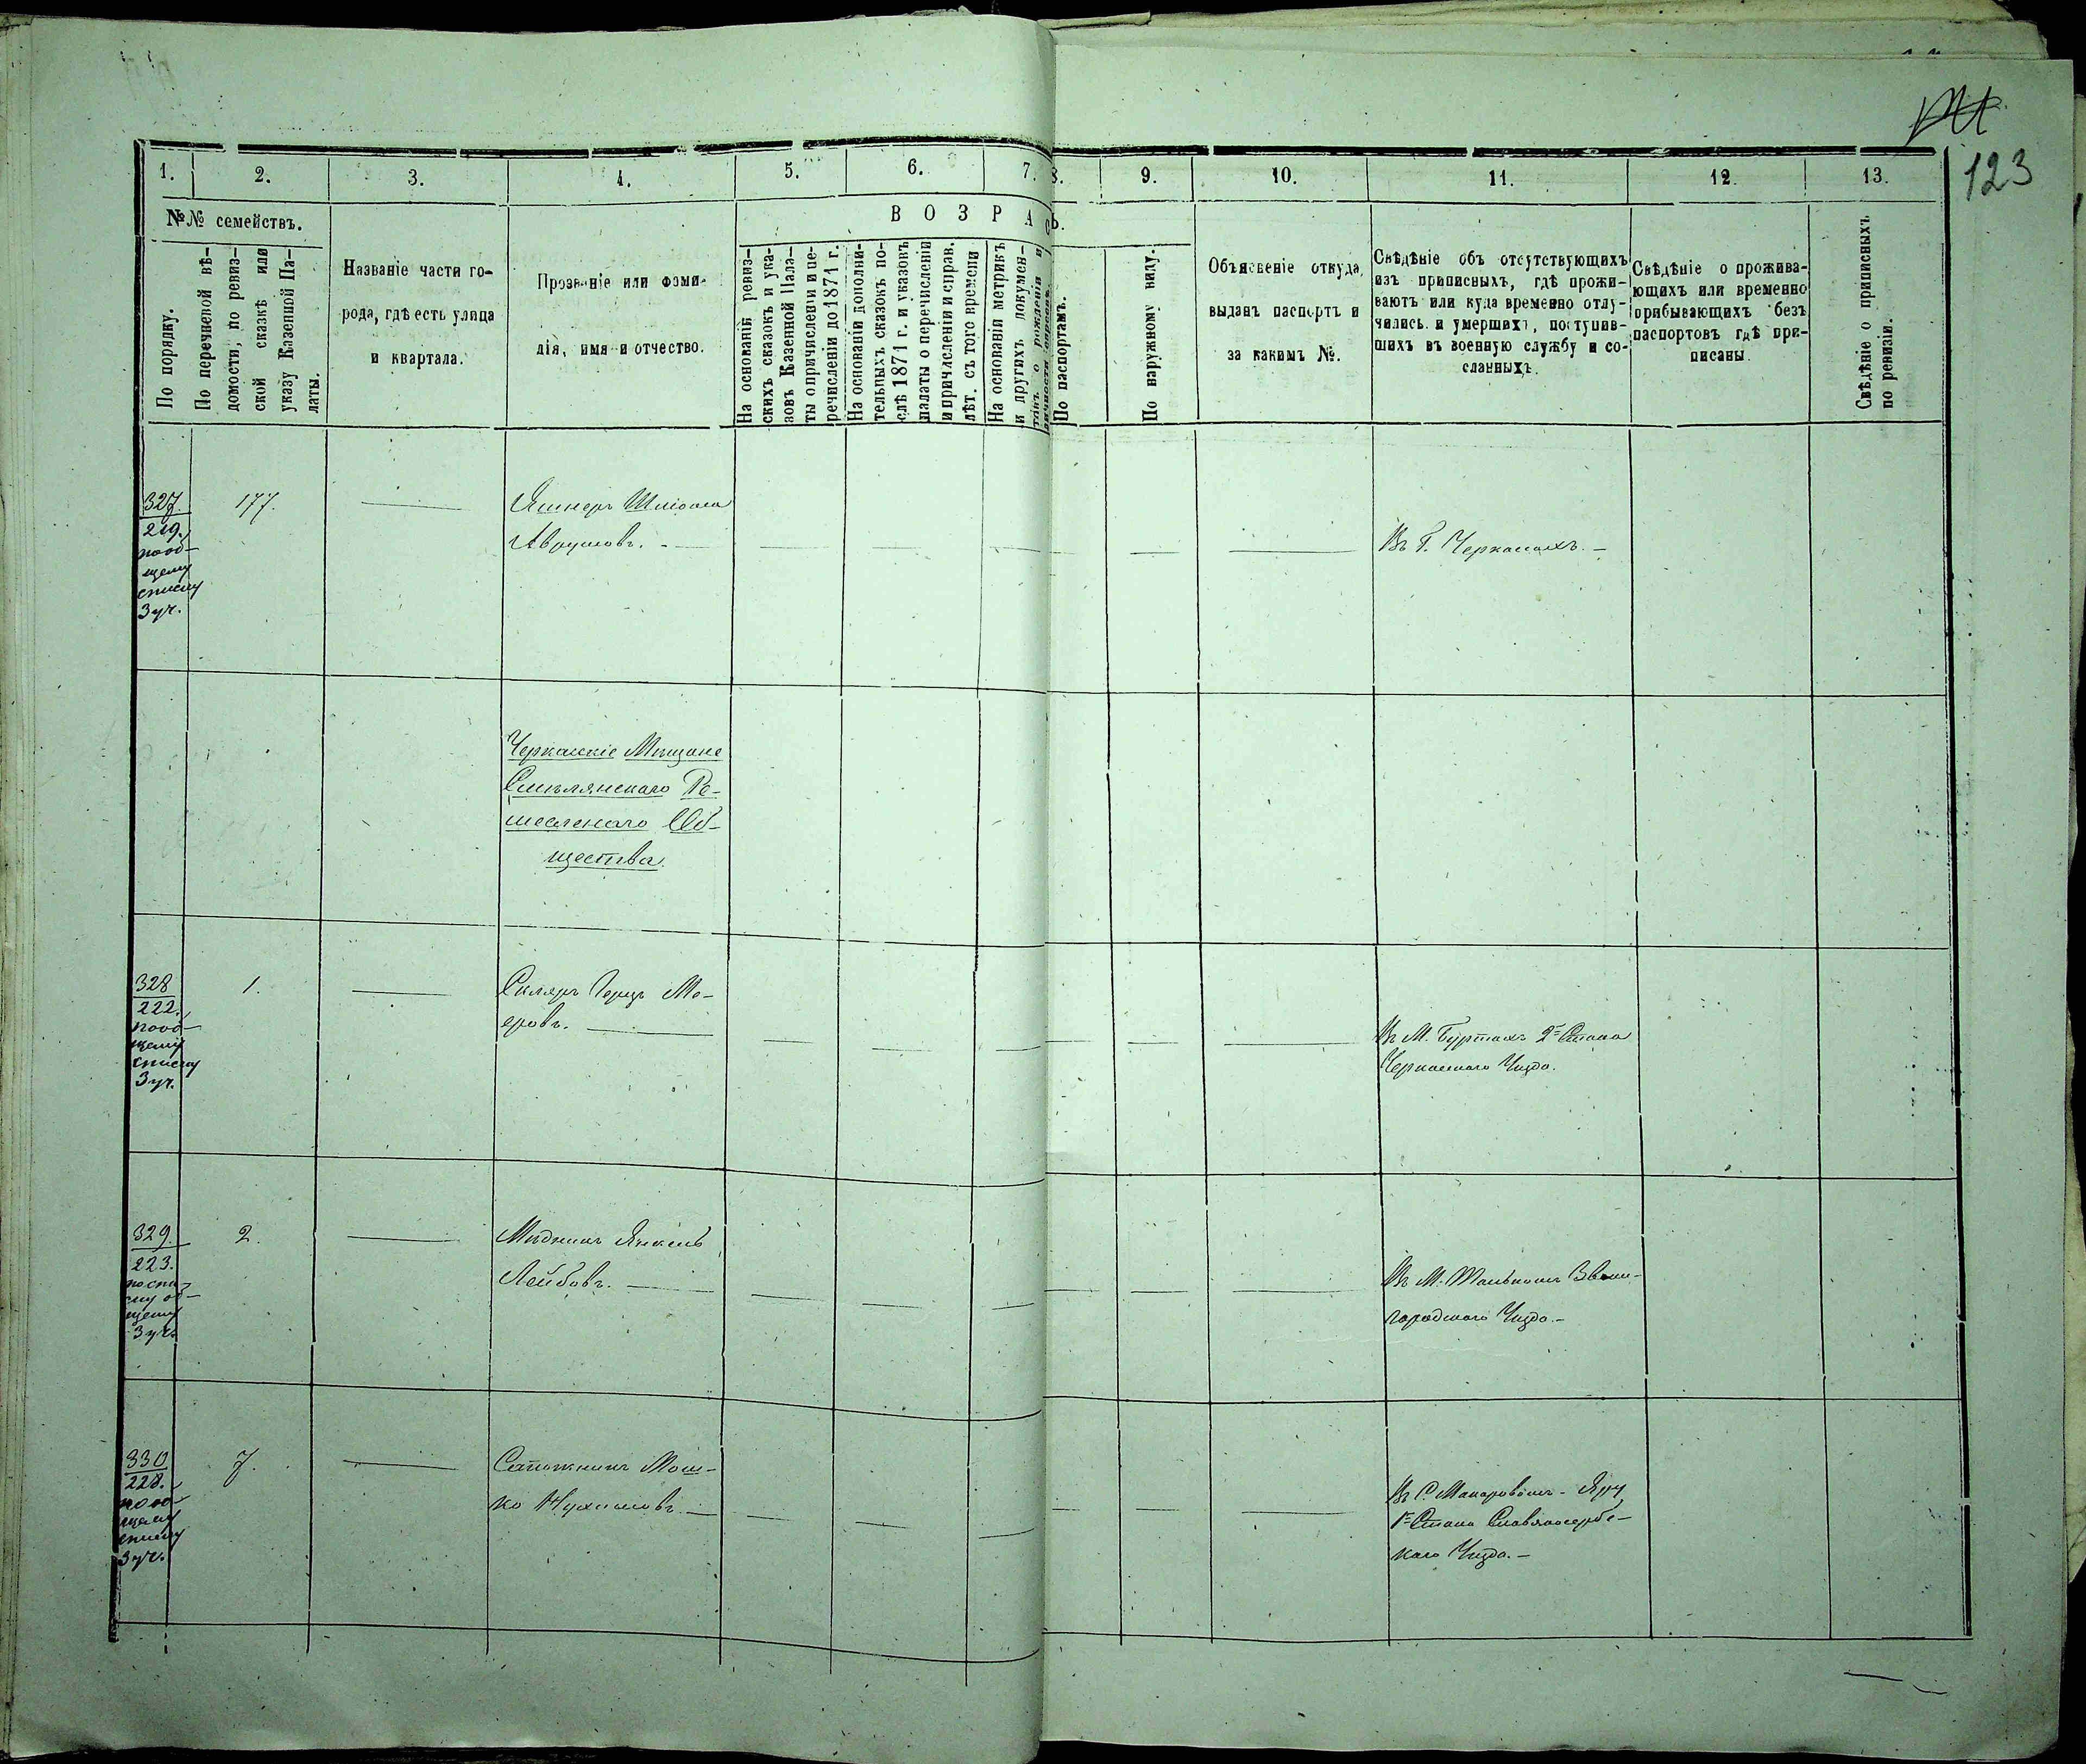 123
1. 2. 3. 4. 5. 6. 7. 8. 9. 10. 11. 12. 13.
№№ семействъ.
По порядку.
По перечневой вѣ-
домости, по ревиз-
ской сказкѣ или
указу Казенной Па-
латы.
Названіе части го-
рода, гдѣ есть улица
и квартала.
Прозваніе или фами-
лія, имя и отчество.
ВОЗРАСТЪ.
На основаніи ревиз-
скихъ сказокъ и ука-
зовъ Казенной Пала-
ты о причисленіи и пе-
речисленіи до 1871 г.
На основаніи дополни-
тельныхъ сказокъ по-
слѣ 1871 г. и указовъ
палаты о перечисленіи
и причисленіи и справ.
лѣт. съ того времени
На основаніи метрикъ
и другихъ докумен-
товъ о рожденіи и
По паспортамъ.
По наружному виду.
Объясненіе откуда
выданъ паспортъ и
за какимъ №.
Свѣдѣніе объ отсутствующихъ
изъ приписныхъ, гдѣ прожи-
ваютъ или куда временно отлу-
чились и умершихъ, поступив-
шихъ въ военную службу и со-
сланныхъ.
Свѣдѣніе о прожива-
ющихъ или временно
прибывающихъ безъ
паспортовъ гдѣ при-
писаны.
Свѣдѣніе о приписныхъ
по ревизіи.
327.
219.
по об-
щему
списку
3 уч.
177.
Яшнеръ Шліома
Аврумовъ.
Въ Г. Черкасахъ.
Черкаскіе Мѣщане
Смѣлянскаго Ре-
месленаго Об-
щества.
328
222.
по об-
щему
списку
3 уч.
1.
Скляръ Герцъ Ме-
еровъ.
Въ М. Буртахъ 2го Стана
Черкаскаго Уѣзда.
329.
223.
по спи-
ску об-
щему
3 уч.
2.
Мѣдникъ Янкель
Лейбовъ.
Въ М. Тальномъ Звени-
городскаго Уѣзда.
330
228.
по об-
щему
списку
3 уч.
7.
Сапожникъ Мош-
ко Нухимовъ.
Въ С. Макаровомъ-Яру
1го Стана Славяносербс-
каго Уѣзда.